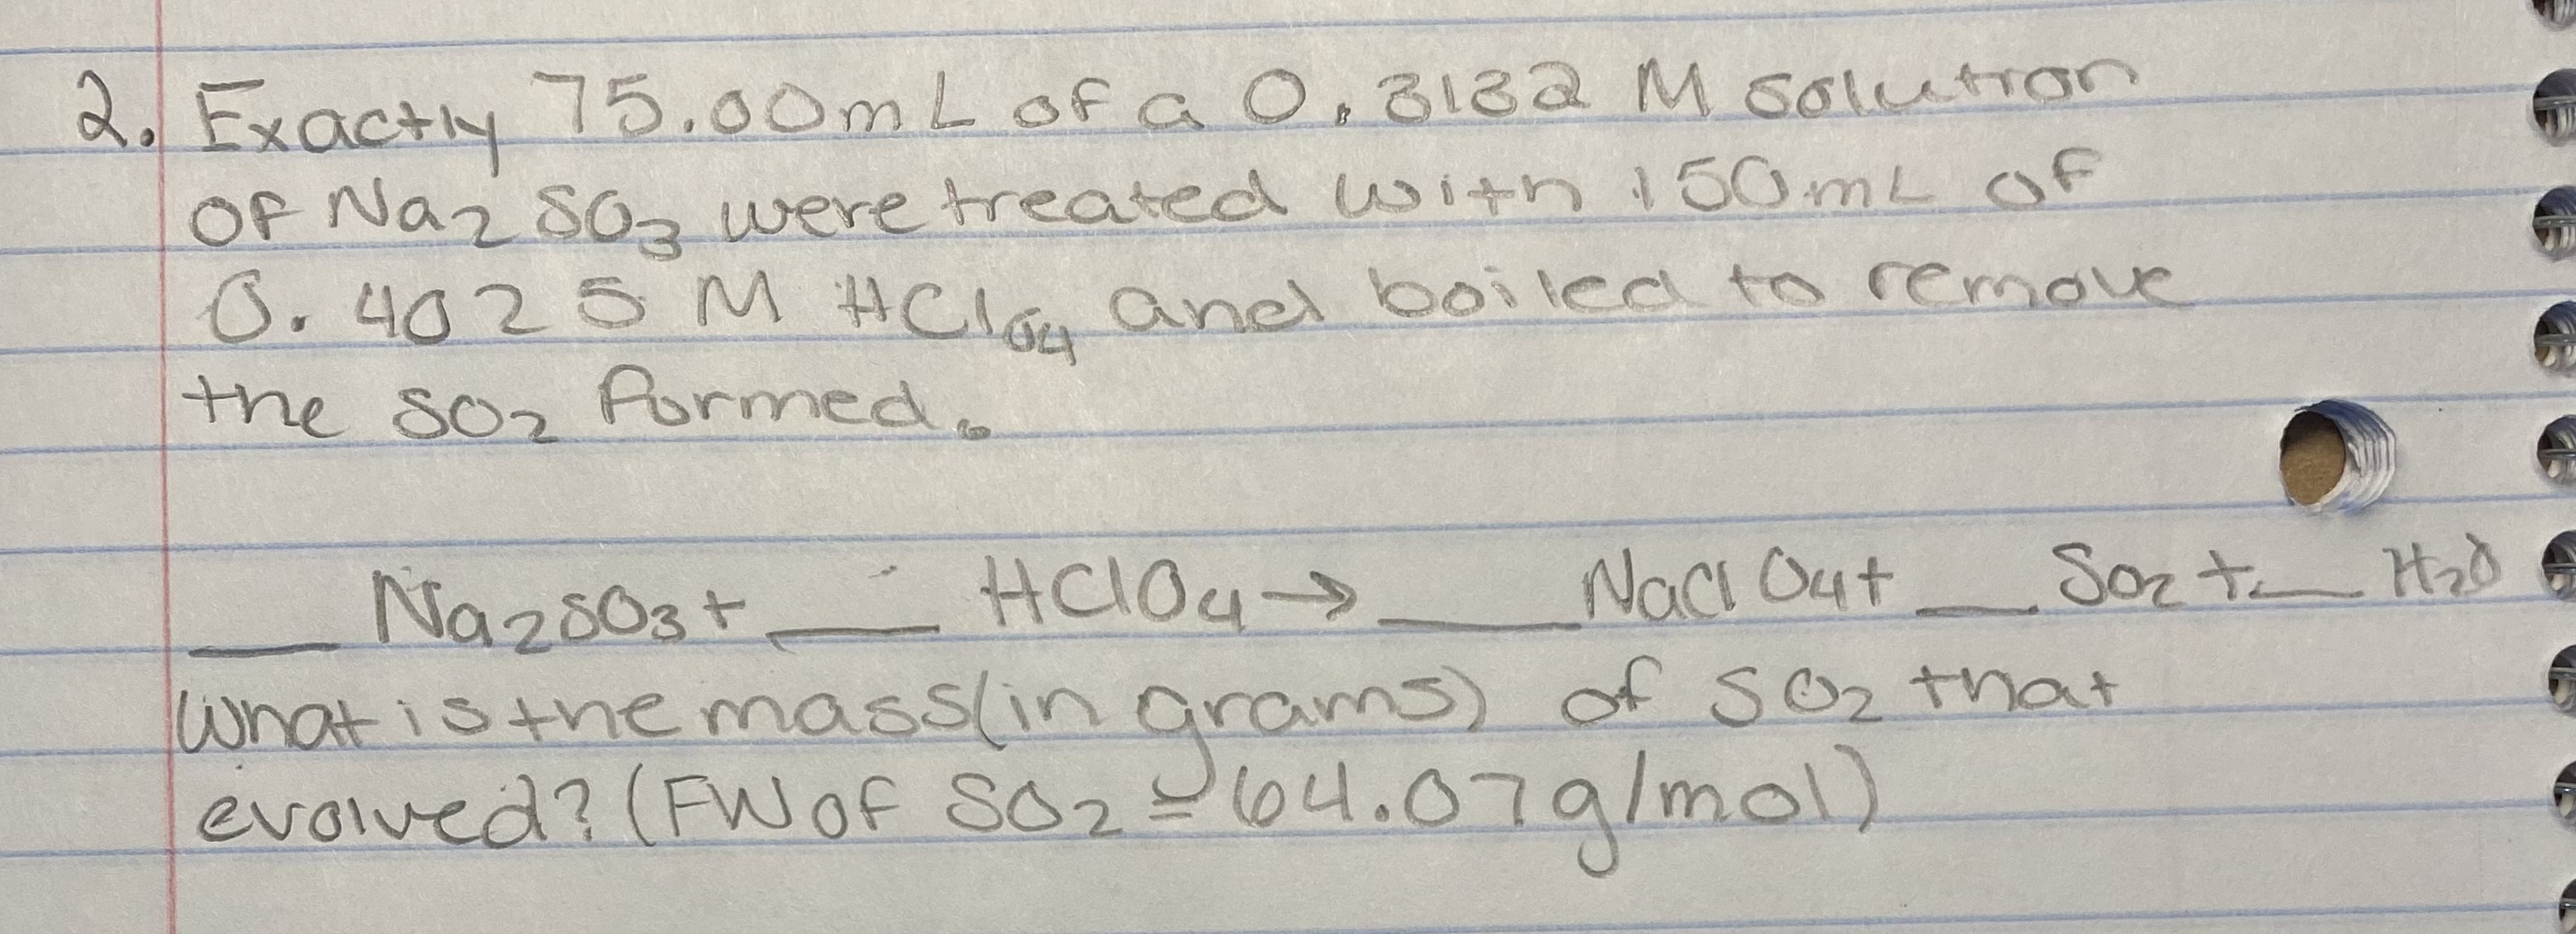 2. Exactly 75.00mL of a 0.3132 M solution
of Na2 SO3 were treated with 150mL of
0.4025 M HClO4 and boiled to remove
the SO2 formed.
__ Na2SO3 + __ HClO4 → __ NaClO4 + __ SO2 + __ H2O
What is the mass(in grams) of SO2 that
evolved? (FW of SO2 = 64.07g/mol)